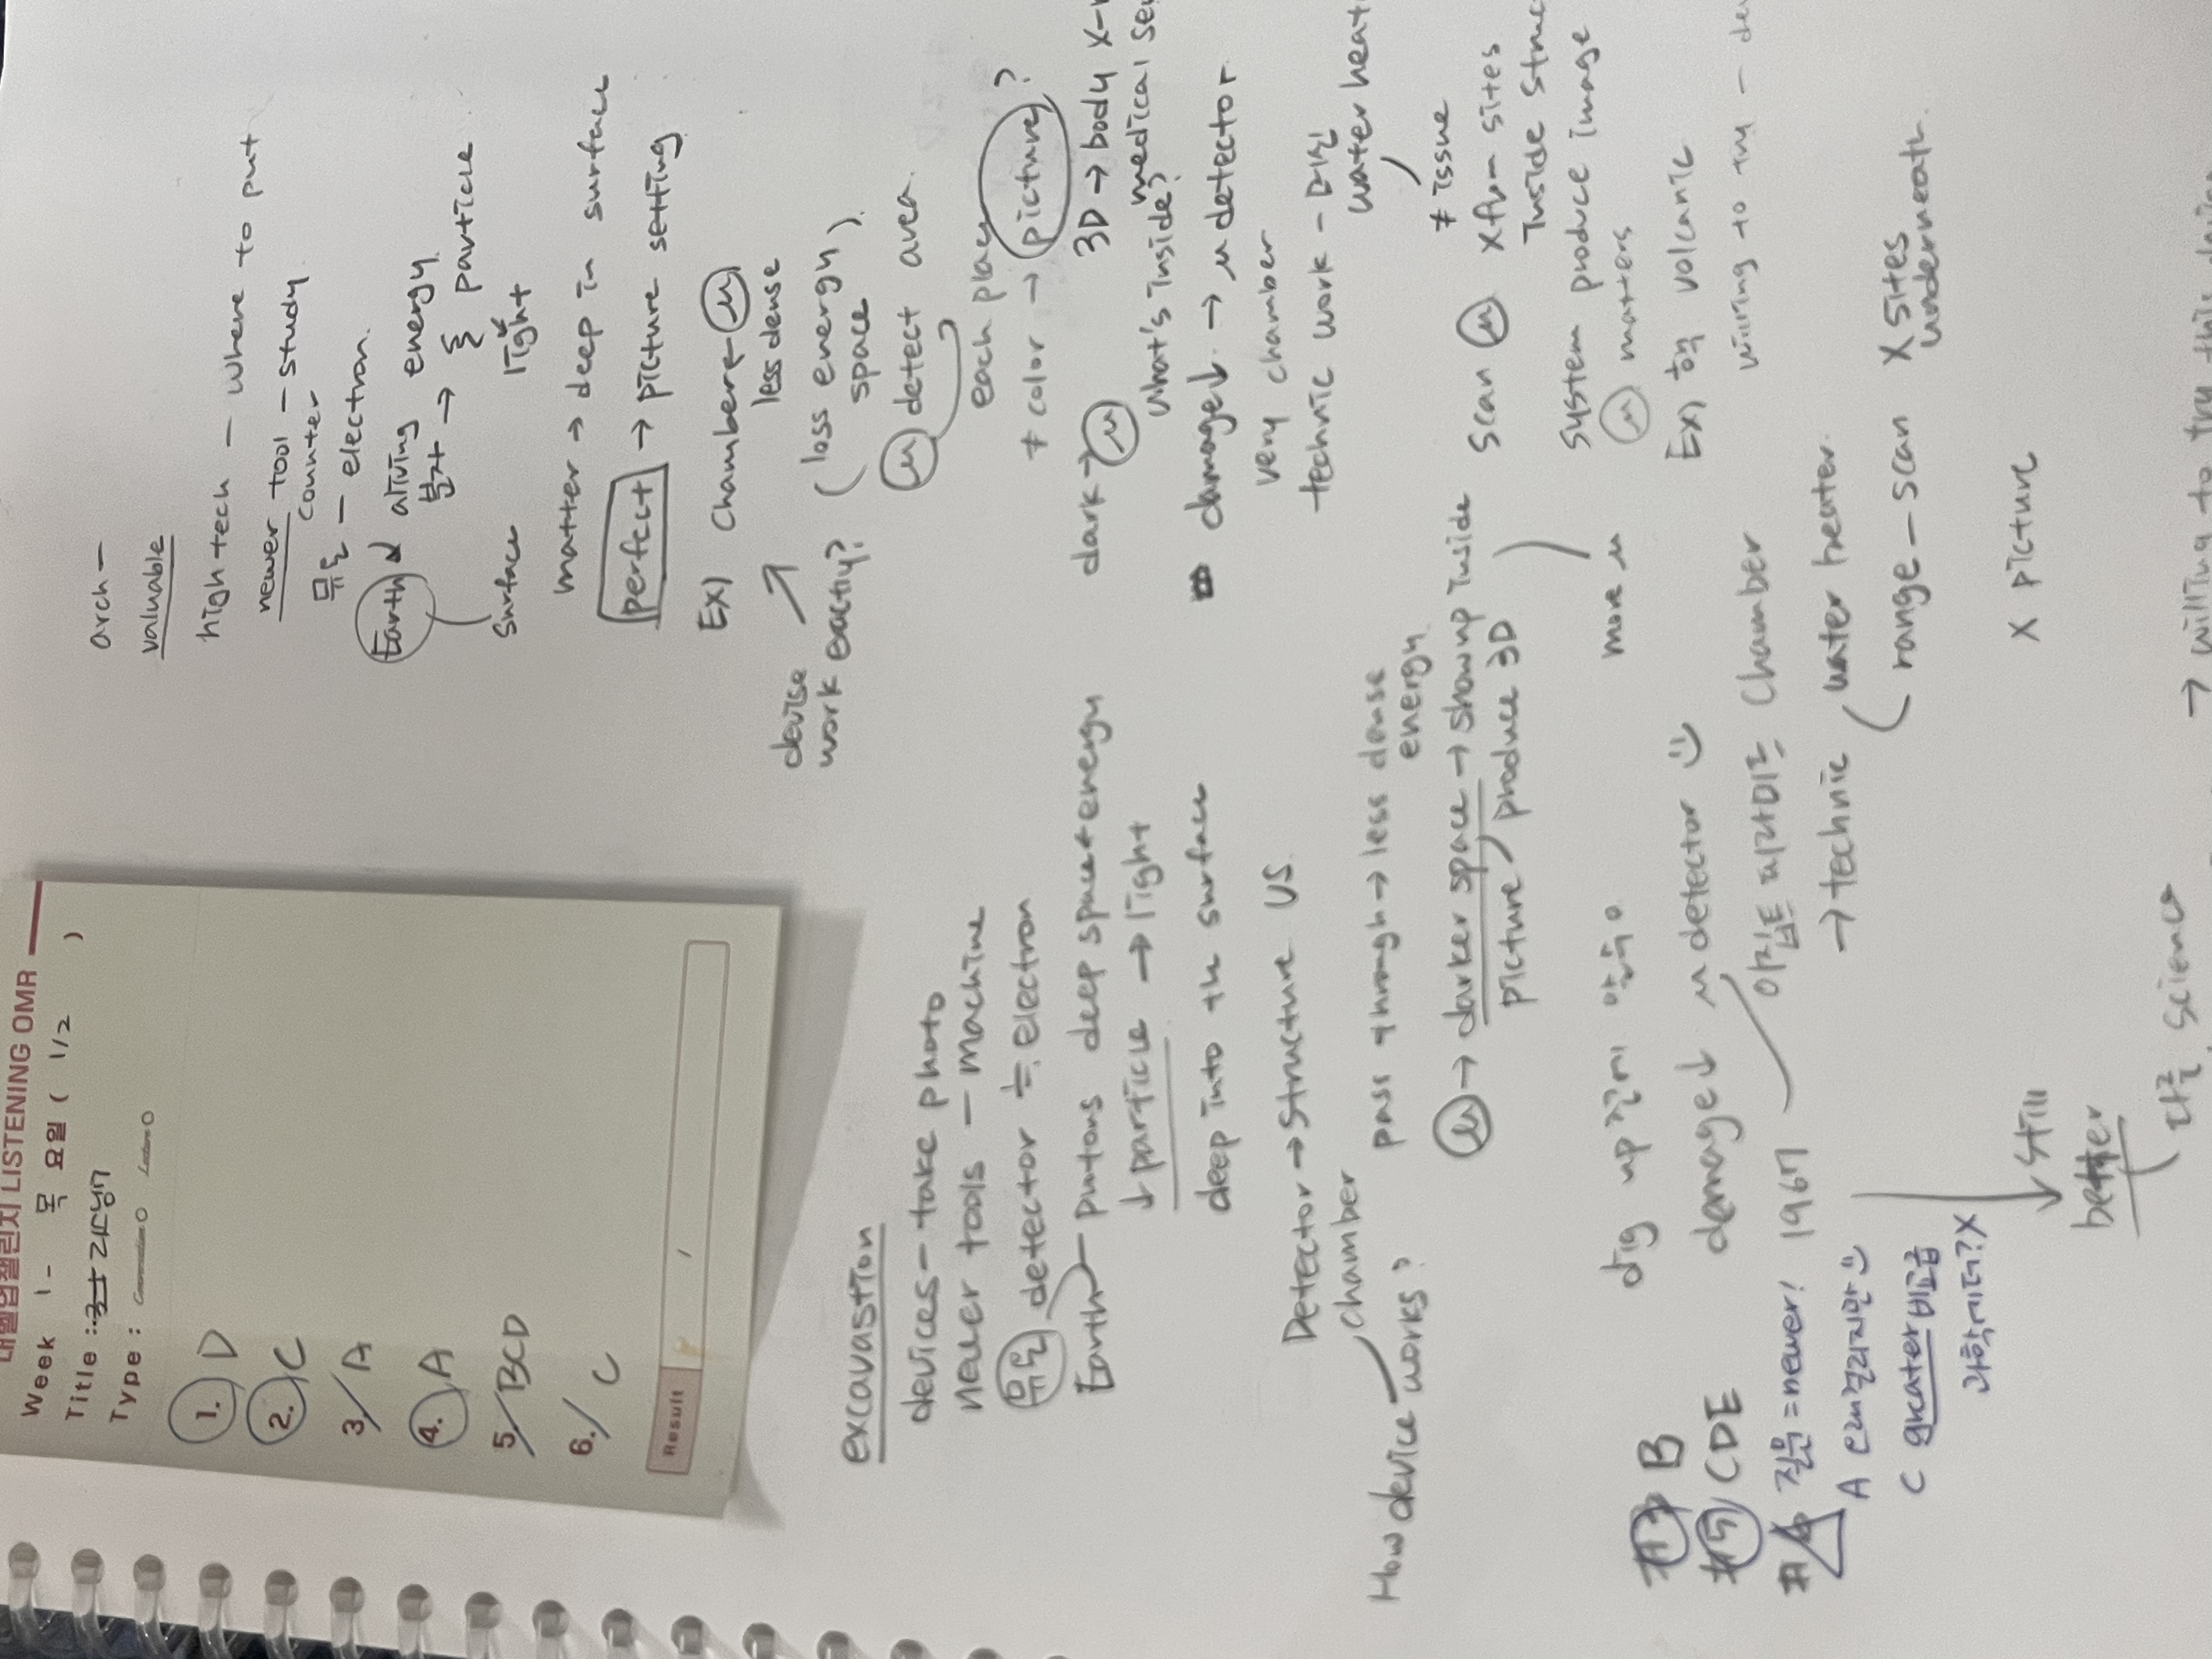 매일밥챌린지 LISTENING OMR
Week 1 - 목 요일 ( 1/2 )
Title :
Type : Conversation O Lecture O
1. D
2. C
3 A
4. A
5 BCD
6. C
Result /
excavastion
devices - take photo
newer tools - machine
뮤온 detector ≒ electron
Earth - deep space + energy
↓ particle → light
deep into th surface
Detector → structure US
chamber
How device works?
pass through → less dense
energy
u → darker space → show up inside
picture produce 3D
dig up 안해도
more u
damage↓ u detector
이집트 피라미드 chamber
1967
→ technic water heater.
range - scan X sites
underneath.
X picture
#3 B
#5 CDE
#6 질문 = newer!
A
C greater 비교급
과학에 더? X
↓ still
better
다른 science
→ willing to try this
arch -
valuable
high tech - where to put
newer tool - study
counter
뮤온 - electron.
Earth ↓ energy.
surface
→ particle
light
matter → deep in surface
perfect → picture setting
Ex) chamber - u
less dense
device
work exactly? (loss energy).
space
u detect area.
each play
≠ color → picture?
dark → u
3D → body X-
medical
what's inside?
damage↓. → u detector
very chamber
technic work -
water heat
≠ issue
scan u sites
inside struc
system produce image
u matters
Ex) volcanic
willing to try - de